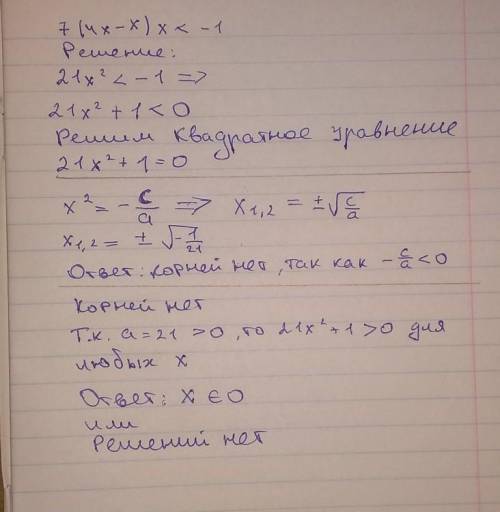 7(4x-x)x < -1
Решение:
21x² < -1 =>
21x² + 1 < 0
Решим квадратное уравнение
21x² + 1 = 0
x² = -c/a => x₁,₂ = ±√c/a
x₁,₂ = ±√-1/21
Ответ: корней нет, так как -c/a < 0
Корней нет
Т.к. a = 21 > 0, то 21x² + 1 > 0 для
любых x
Ответ: x ∈ 0
или
Решений нет